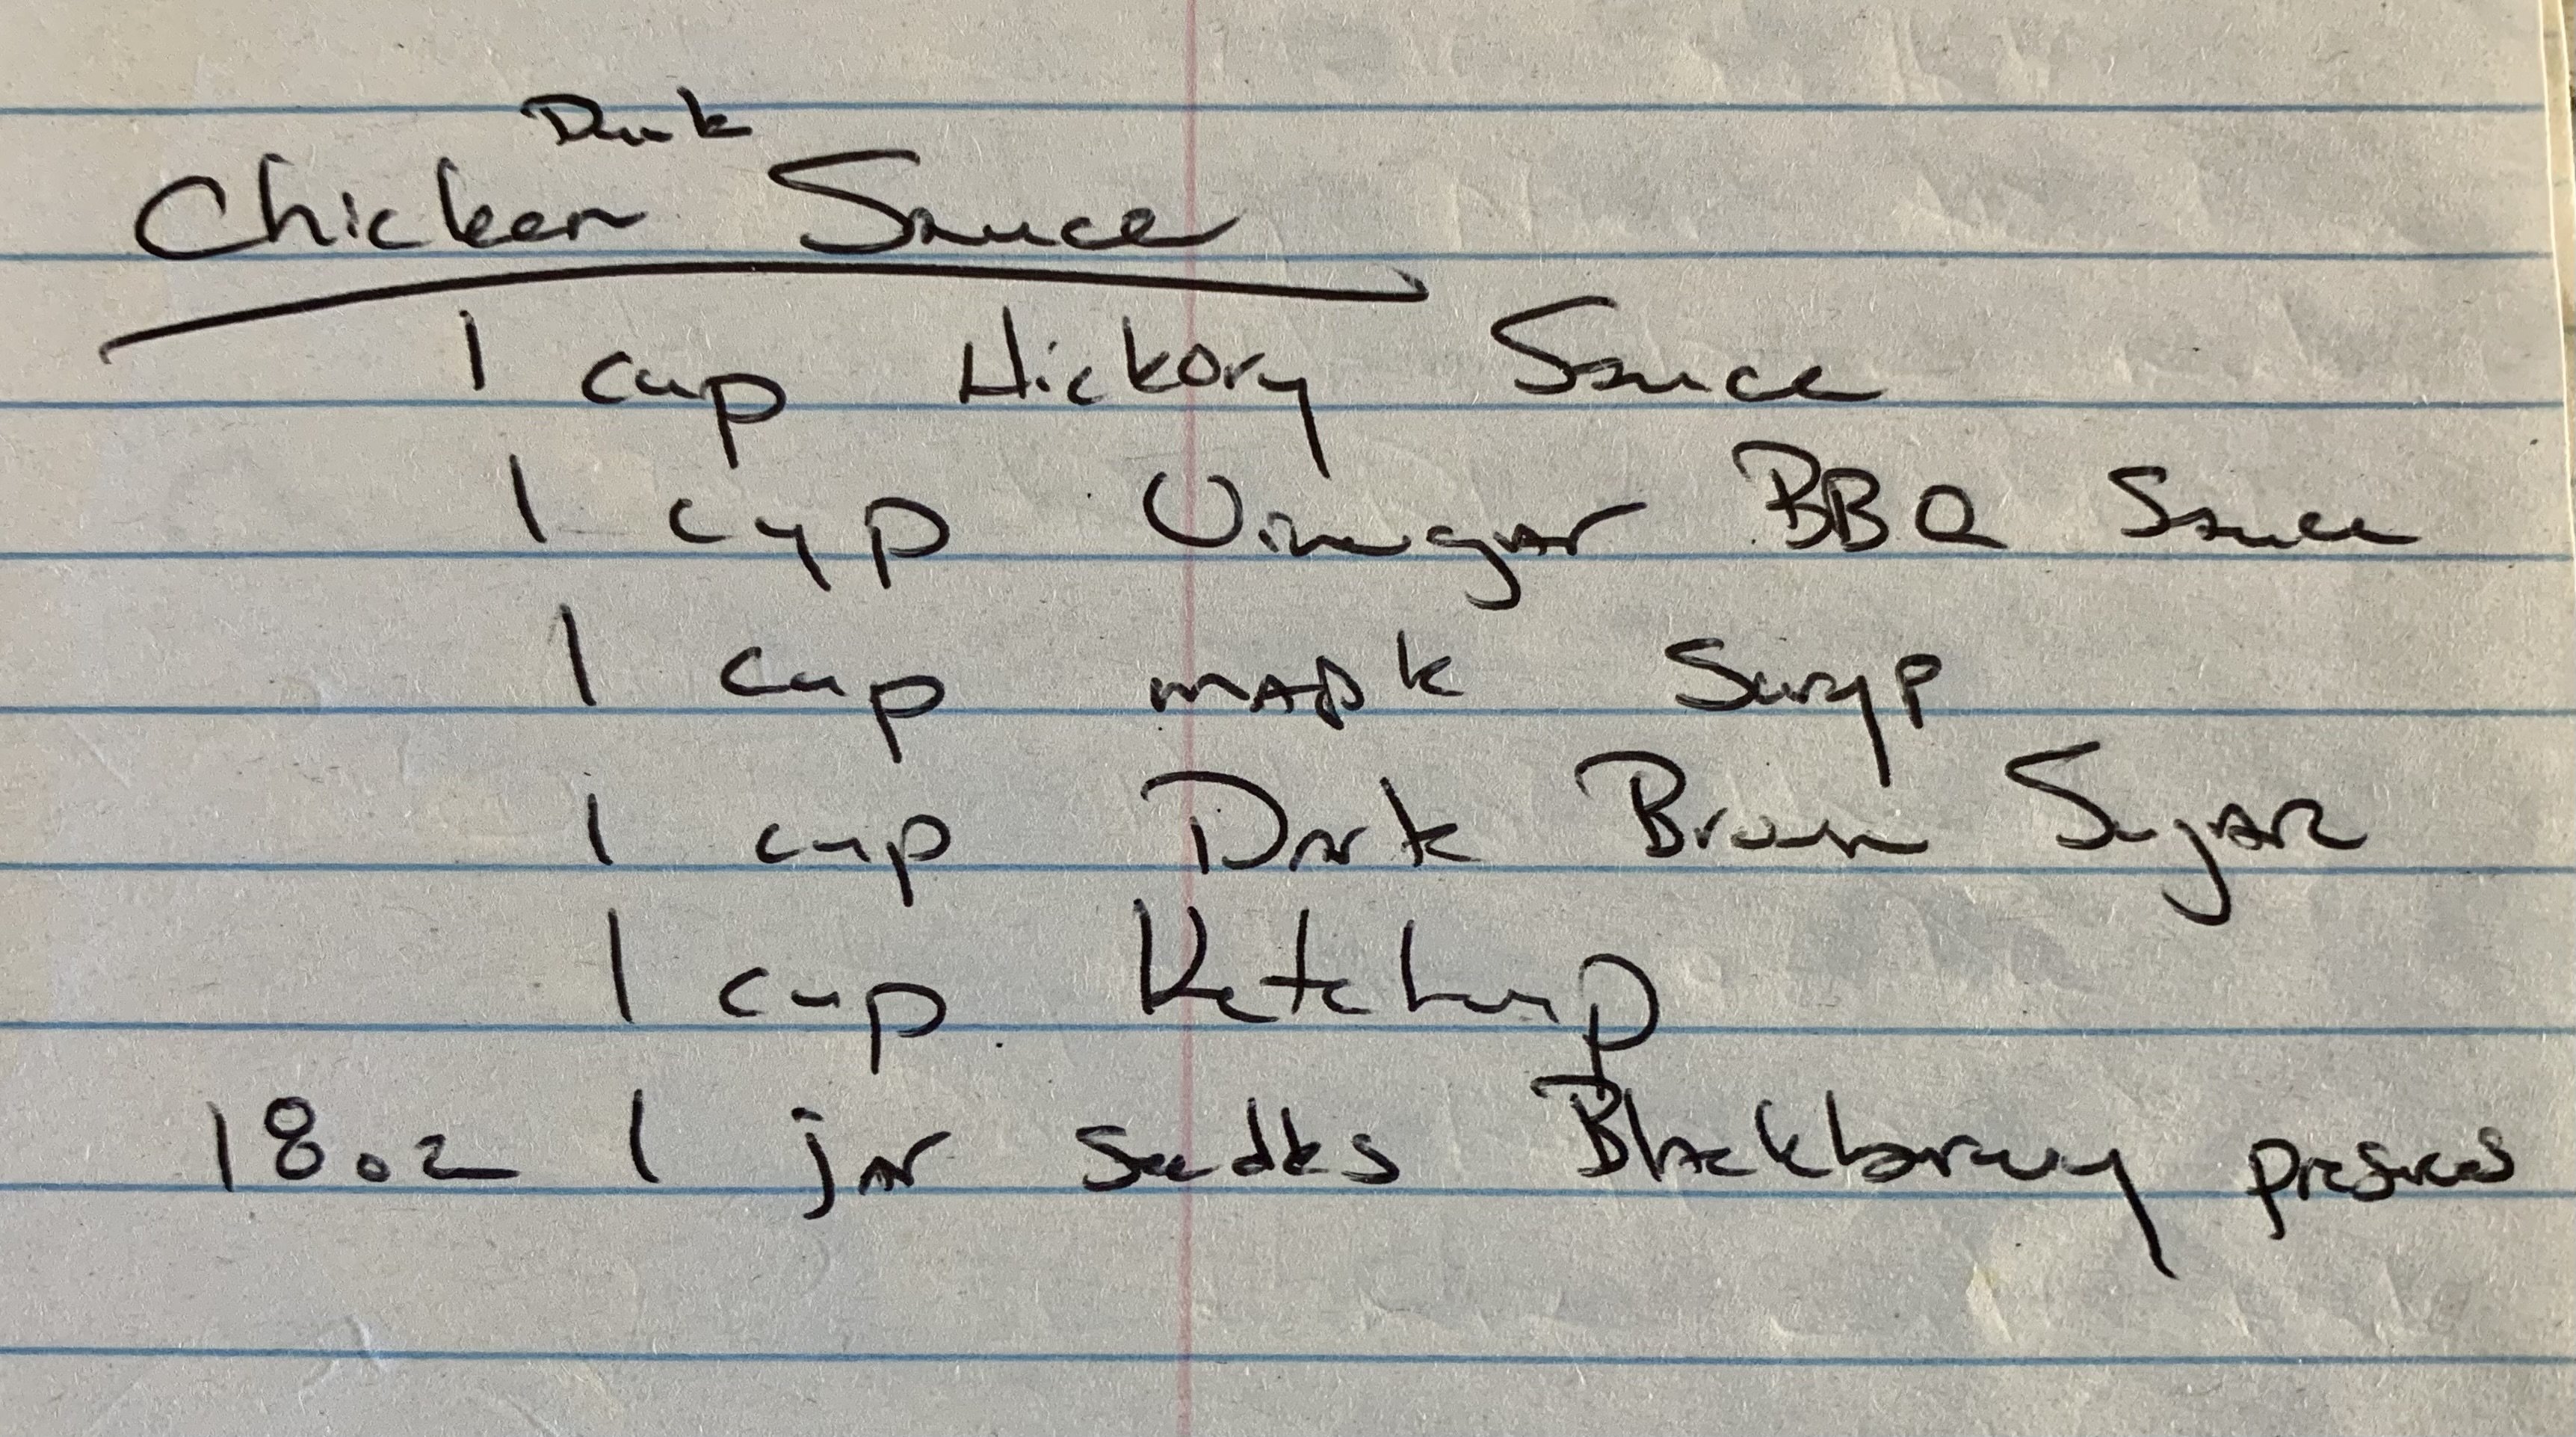 Dunk
Chicken Sauce
1 cup Hickory Sauce
1 cup Vinegar BBQ Sauce
1 cup maple Suryp
1 cup Dark Brown Sugar
1 cup Ketchup
18oz 1 jar seedles Blackberry preserves